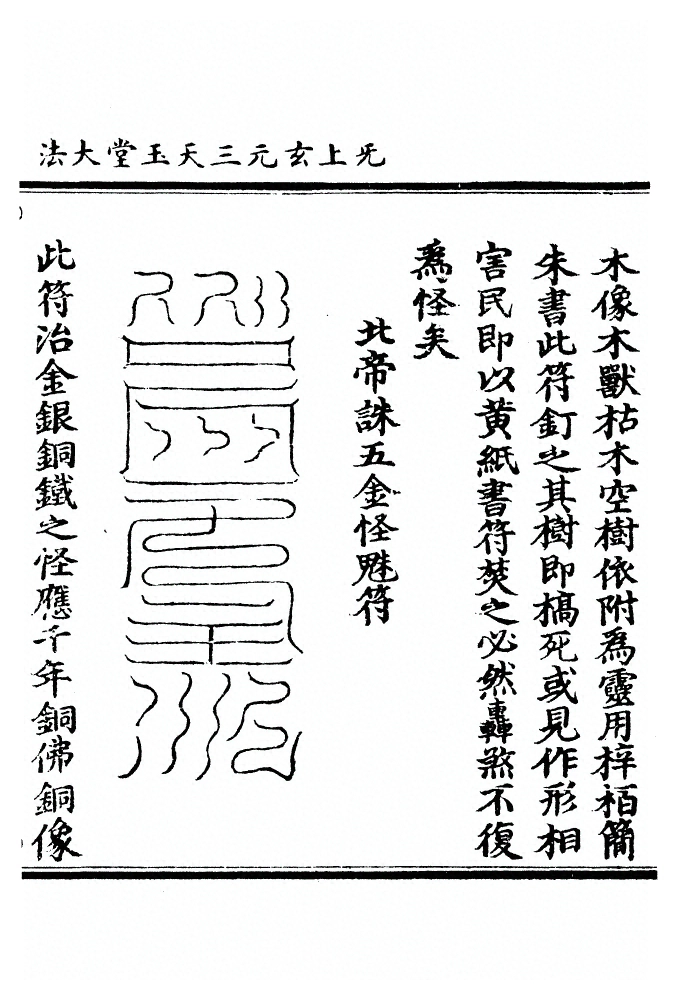 旡上玄元三天玉堂大法
木像木獸枯木空樹依附爲靈用梓栢簡
朱書此符釘之其樹即槁死或見作形相
害民即以黃紙書符焚之必然轟煞不復
爲怪矣
北帝誅五金怪魃符
此符治金銀銅鐵之怪應千年銅佛銅像